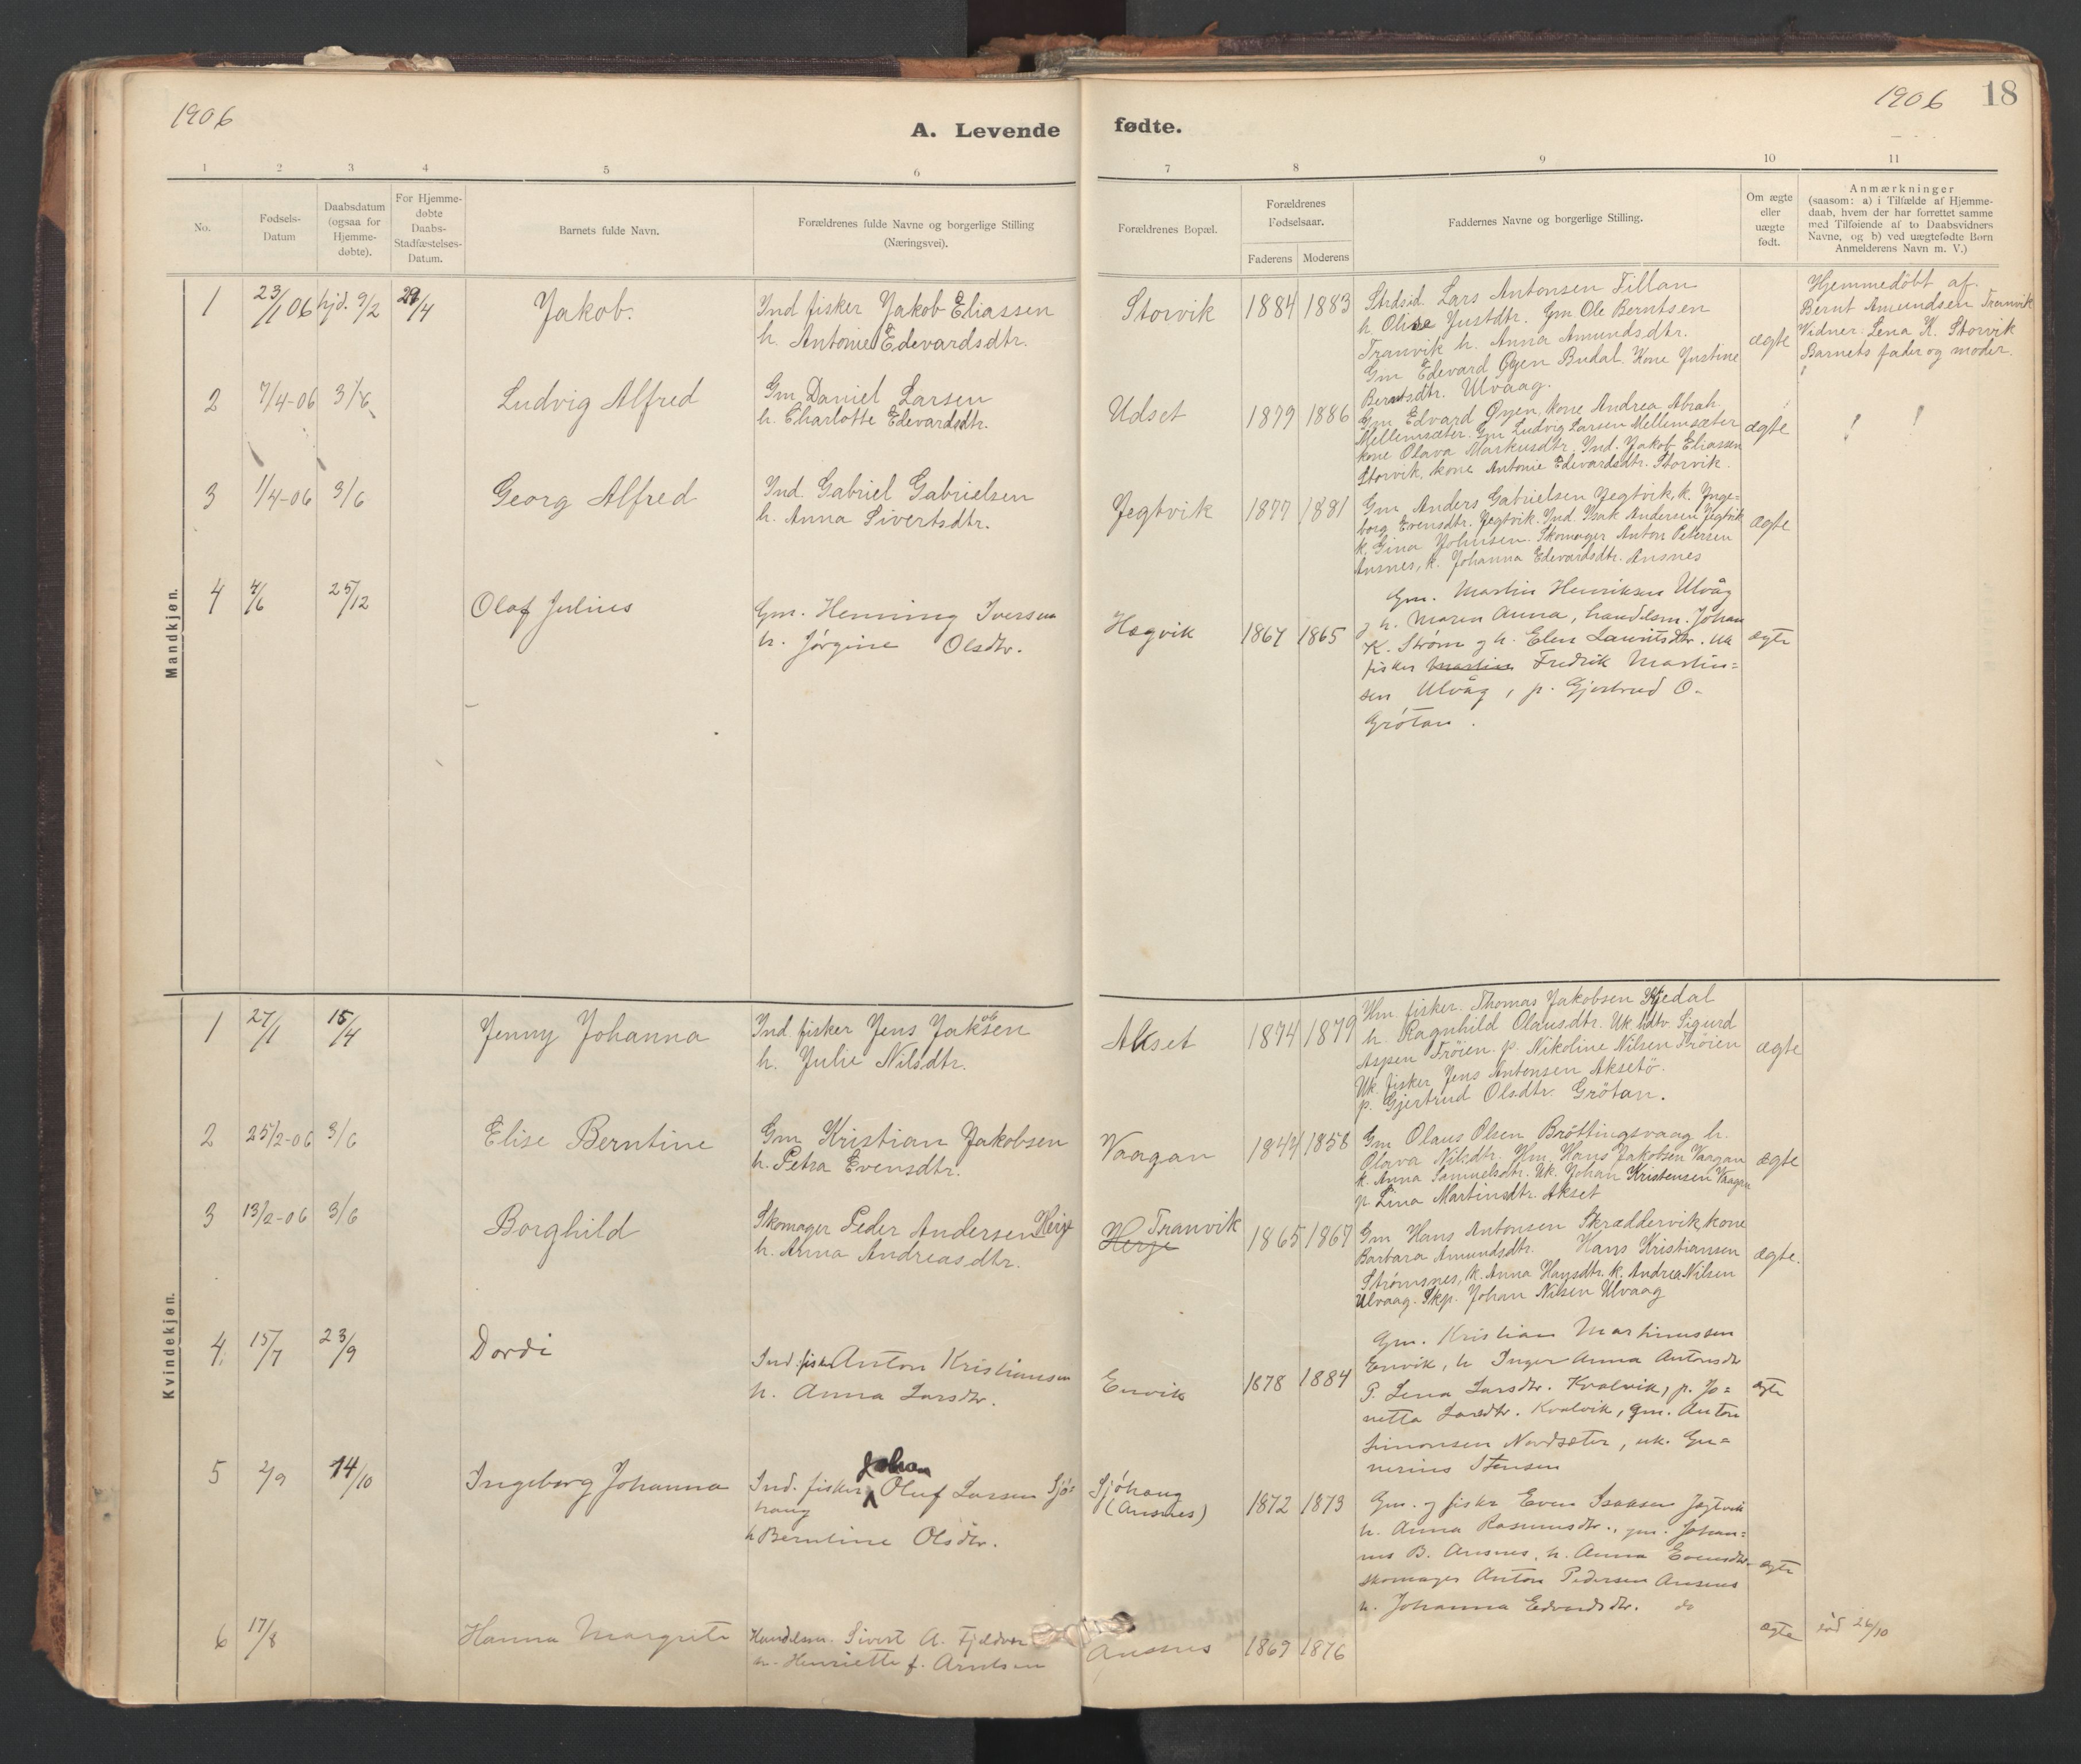 1906
1906 18
A. Levende fødte.
1 2 3 4 5 6 7 8 9 10 11
No.
Fødsels-
Datum
Daabsdatum
(ogsaa for
Hjemme-
døbte).
For Hjemme-
døbte
Daabs-
Stadfæstelses-
Datum.
Barnets fulde Navn.
Forældrenes fulde Navne og borgerlige Stilling
(Næringsvei).
Forældrenes Bopæl.
Forældrenes
Fødselsaar.
Faderens Moderens
Faddernes Navne og borgerlige Stilling.
Om ægte
eller
uægte
født.
Anmærkninger
(saasom: a) i Tilfælde af Hjemme-
daab, hvem der har forrettet samme
med Tilføiende af to Daabsvidners
Navne, og b) ved uægtefødte Børn
Anmelderens Navn m. V.)
Mandkjøn.
1 23/1 06 hjd. 9/2 29/4 Jakob.
Ind fisker Jakob Eliassen
h. Antonie Edevardsdtr.
Storvik 1884 1883
Strdsid. Lars Antonsen Fillan
h. Olise Justdtr. Gm Ole Berntsen
Tranvik h. Anna Amundsdtr.
Gm Edevard Øyen Budal. Kone Justine
Berntsdtr. Ulvaag.
ægte
Hjemmedöbt af.
Bernt Amundsen Tranvik
Vidner: Lena K. Storvik
Barnets fader og moder.
2 7/4-06 3/6 Ludvig Alfred
Gm Daniel Larsen
h. Charlotte Edevardsdtr.
Udset 1879 1886
Gm Edvard Øyen, kone Andrea Abrah.
Mellemsæter. Gm Ludvig Larsen Mellemsæter
kone Olava Markusdtr. Ind. Jakob Eliassen
Storvik, kone Antonie Edevardsdtr. Storvik.
ægte
3 1/4-06 3/6 Georg Alfred
Ind. Gabriel Gabrielsen
h. Anna Sivertsdtr.
Jegtvik 1877 1881
Gm Anders Gabrielsen Jegtvik, k. Inge=
borg Evensdtr. Jegtvik. Ind. Isak Andersen Jegtvik
k. Gina Johnsen. Skomager Anton Petersen
Ansnes, k. Johanna Edevardsdtr. Ansnes
ægte
4 4/6 25/12 Olaf Julius
Gm. Henning Iversen
h. Jørgine Olsdtr.
Hægvik 1867 1865
Gm. Martin Henriksen Ulvåg
g h. Maren Anna, handelsm. Johan
K. Strøm g h. Elen Lauritsdtr. uk
fisker Martin Fredrik Martin=
sen Ulvåg, p. Gjertrud O.
Grötan.
ægte
Kvindekjøn.
1 27/1 15/4 Jenny Johanna
Ind fisker Jens Jakobsen
h. Julie Nilsdtr.
Akset 1874 1879
Hm. fisker. Thomas Jakobsen Stjedal
h. Ragnhild Olausdtr. Uk. hdtv. Sigurd
Aspen Fröien. p. Nikoline Nilsen Fröien
Uk. fisker Jens Antonsen Aksetö.
p. Gjertrud Olsdtr. Grötan.
ægte
2 25/2-06 3/6 Elise Berntine
Gm. Kristian Jakobsen
h. Petra Evensdtr.
Vaagan 1844 1858
Gm Olaus Olsen Bröttingsvaag h.
Olava Nilsdtr. Hm. Hans Jakobsen Vaagan
k. Anna Samuelsdtr. Uk. Johan Kristensen Vaagan
p. Lina Martinsdtr. Akset
ægte
3 13/2-06 3/6 Borghild
Skomager Peder Andersen Herje
h. Anna Andreasdtr.
Herje Tranvik 1865 1867
Gm Hans Antonsen Skræddervik, kone
Barbara Amundsdtr. Hans Kristiansen
Strømsnes, k. Anna Hansdtr. k. Andrea Nilsen
Ulvaag. Skp. Johan Nilsen Ulvaag
ægte.
4. 15/7 23/9 Dordi
Ind. fisk Anton Kristiansen
h. Anna Larsdtr.
Envik 1878 1884
Gm. Kristian Martinussen
Envik, h Inger Anna Antonsdtr
P. Lena Larsdtr. Kvalvik, p. Jo=
netta Larsdtr. Kvalvik, gm. Anton
Simonsen Nordsæter, uk. Gu=
nerius Stensen
ægte
5 2/9 14/10 Ingeborg Johanna
Ind. fisker Johan Oluf Larsen Sjö=
haug
h Berntine Olsdtr.
Sjöhaug
(Ansnes)
1872 1873
Gm. g fisker Even Isaksen Jegtvik
h. Anna Rasmusdtr., gm. Johan=
nes B. Ansnes, h. Anna Evensdtr.
skomager Anton Pedersen Ansnes
h. Johanna Edvardsdtr. do
ægte
6 17/8 Hanna Margrete
Handelsm. Sivert A. Fjeldvær
h. Henriette f. Arntsen
Ansnes 1869 1876
ægte
död 26/10